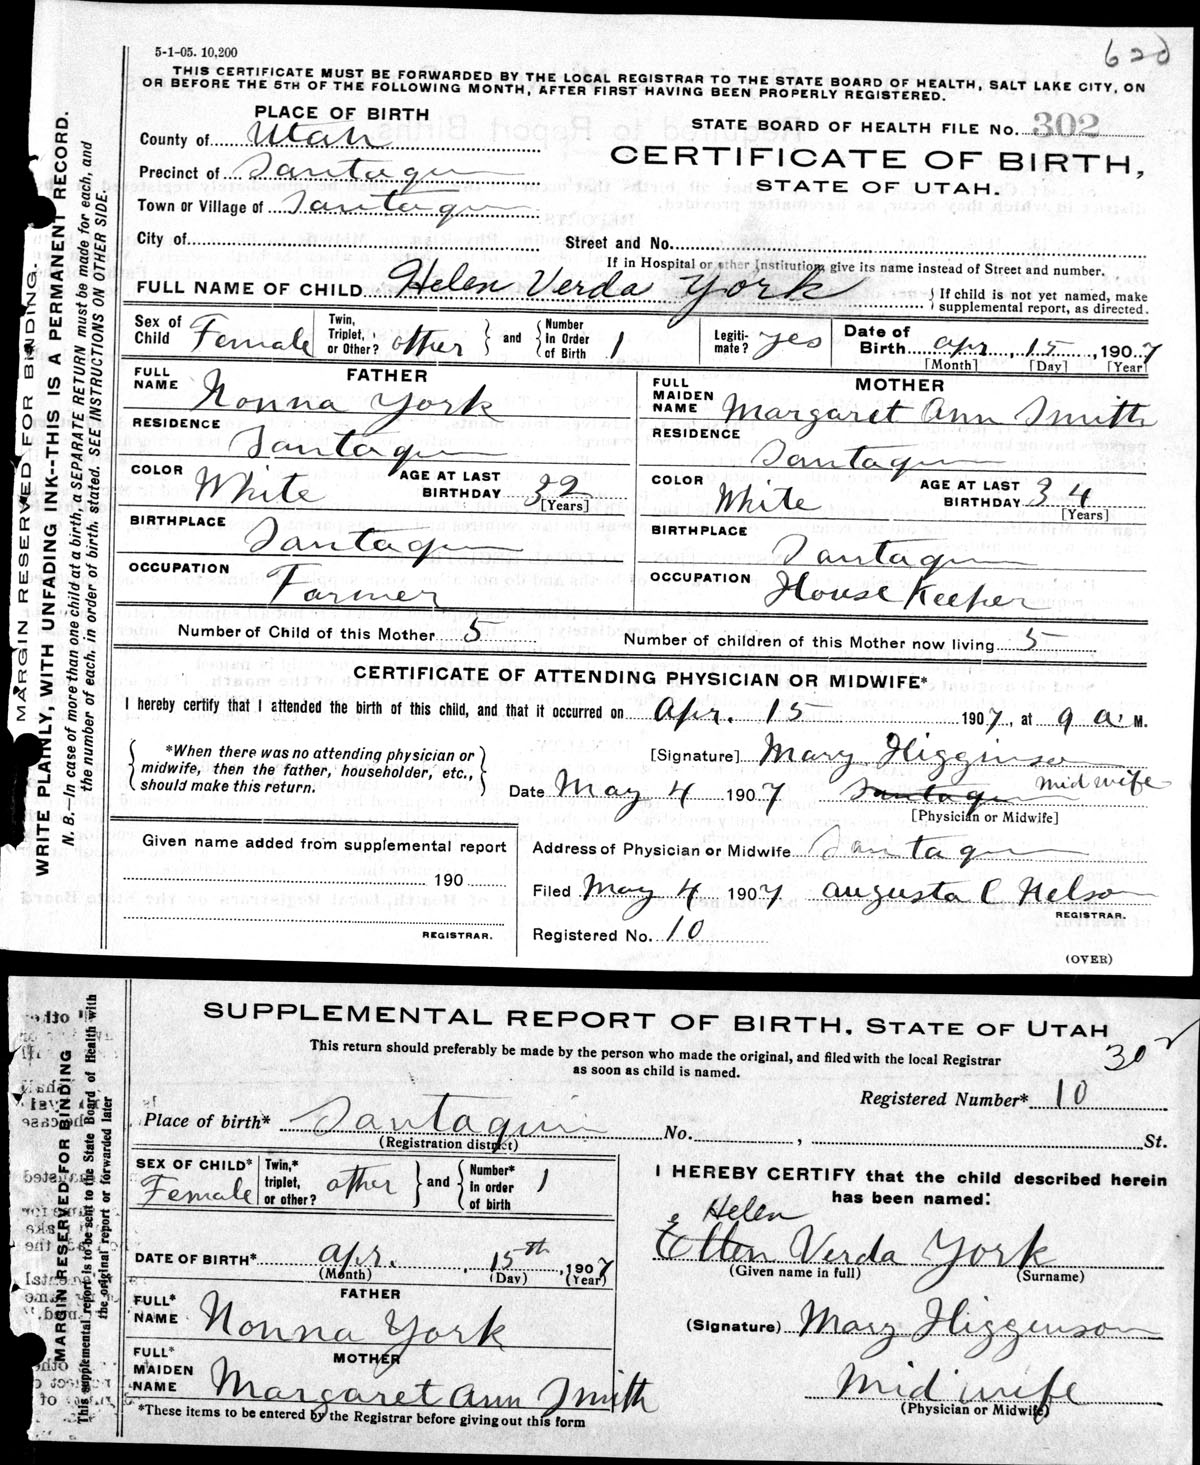 5-1-05. 10,200
620
THIS CERTIFICATE MUST BE FORWARDED BY THE LOCAL REGISTRAR TO THE STATE BOARD OF HEALTH, SALT LAKE CITY, ON
OR BEFORE THE 5TH OF THE FOLLOWING MONTH, AFTER FIRST HAVING BEEN PROPERLY REGISTERED.
PLACE OF BIRTH
STATE BOARD OF HEALTH FILE No. 302
County of Utah
CERTIFICATE OF BIRTH,
STATE OF UTAH.
Precinct of Santaquin
Town or Village of Santaquin
City of Street and No.
If in Hospital or other Institution, give its name instead of Street and number.
FULL NAME OF CHILD Helen Verda York } If child is not yet named, make supplemental report, as directed.
Sex of Child Female Twin, Triplet, or Other? other } and { Number In Order of Birth 1 Legitimate? yes Date of Birth Apr, 15, 1907
[Month] [Day] [Year]
FATHER
FULL NAME Nonna York
RESIDENCE Santaquin
COLOR White AGE AT LAST BIRTHDAY 32 [Years]
BIRTHPLACE Santaquin
OCCUPATION Farmer
MOTHER
FULL MAIDEN NAME Margaret Ann Smith
RESIDENCE Santaquin
COLOR White AGE AT LAST BIRTHDAY 34 [Years]
BIRTHPLACE Santaquin
OCCUPATION House Keeper
Number of Child of this Mother 5 Number of children of this Mother now living 5
CERTIFICATE OF ATTENDING PHYSICIAN OR MIDWIFE*
I hereby certify that I attended the birth of this child, and that it occurred on Apr. 15 1907, at 9 a. M.
{ *When there was no attending physician or midwife, then the father, householder, etc., should make this return. }
[Signature] Mary Higginson
Date May 4 1907 Santaquin Mid wife
[Physician or Midwife]
Given name added from supplemental report
190
REGISTRAR.
Address of Physician or Midwife Santaquin
Filed May 4 1907 Augusta C Nelson
REGISTRAR.
Registered No. 10
(OVER)
MARGIN RESERVED FOR BINDING.
WRITE PLAINLY, WITH UNFADING INK--THIS IS A PERMANENT RECORD.
N. B.—In case of more than one child at a birth, a SEPARATE RETURN must be made for each, and
the number of each, in order of birth, stated. SEE INSTRUCTIONS ON OTHER SIDE.
SUPPLEMENTAL REPORT OF BIRTH, STATE OF UTAH
This return should preferably be made by the person who made the original, and filed with the local Registrar
as soon as child is named.
302
Registered Number* 10
Place of birth* Santaquin No. , St.
(Registration district)
SEX OF CHILD* Female Twin,* triplet, or other? other } and { Number* In order of birth 1
DATE OF BIRTH* Apr. , 15th , 1907
(Month) (Day) (Year)
FATHER
FULL* NAME Nonna York
MOTHER
FULL* MAIDEN NAME Margaret Ann Smith
*These items to be entered by the Registrar before giving out this form
I HEREBY CERTIFY that the child described herein
has been named:
Helen
Ellen Verda York
(Given name in full) (Surname)
(Signature) Mary Higgenson
Mid wife
(Physician or Midwife)
MARGIN RESERVED FOR BINDING
This supplemental report is to be sent to the State Board of Health with
the original report or forwarded later